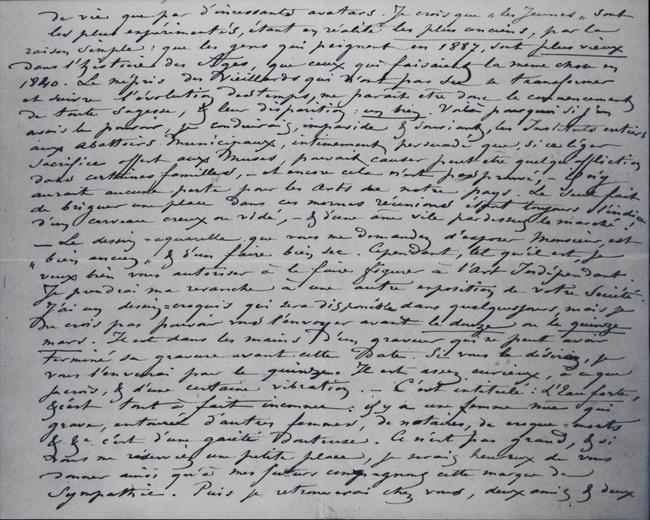 de vie que par d'incessants avatars. Je crois que "les Jeunes" sont
les plus expérimentés, étant en réalité les plus anciens, par la
raison simple : que les gens qui peignent en 1887, sont plus vieux
dans l'histoire des Âges, que ceux qui faisaient la même chose en
1840. Le mépris des Vieillards qui n'ont pas su se transformer
et suivre l'évolution des temps, me paraît être donc le commencement
de toute sagesse, & leur disparition : un bien. Voilà pourquoi si j'en
avais le pouvoir, je conduirais, impavide & souriant, les Instituts entiers
aux abattoirs municipaux, intimement persuadé que, si ce léger
sacrifice offert aux Muses, pouvait causer peut être quelqu'affliction
dans certaines familles, – et encore cela n'est pas prouvé, il n'y
aurait aucune perte pour les Arts de notre pays. Le seul fait
de briguer une place dans ces mornes réunions étant toujours l'indice
d'un cerveau creux ou vidé, – & d'une âme vile par dessus le marché !
– Le dessin-aquarelle, que vous me demandez d'exposer Monsieur, est
"bien ancien" & d'un faire bien sec. Cependant, tel qu'il est, je
veux bien vous autoriser à le faire figurer à l'Art Indépendant
Je prendrai ma revanche à une autre exposition de votre Société.
J'ai un dessin-croquis qui sera disponible dans quelques jours, mais je
ne crois pas pouvoir vous l'envoyer avant le douze ou le quinze
mars. Il est dans les mains d'un graveur qui ne peut avoir
terminé sa gravure avant cette date. Si vous le désirez, je
vous l'enverrai pour le quinze. Il est assez curieux, à ce que
je crois, & d'une certaine vibration. – C'est intitulé : l'Eau forte,
& c'est tout à fait inconnu : il y a une femme nue qui
grave, entourée d'autres femmes, de notaires, de croque-morts
& &c c'est d'une gaieté douteuse. Ce n'est pas grand, & si
vous me réservez une petite place, je serais heureux de vous
donner ainsi qu'à mes futurs compagnons cette marque de
Sympathie. Puis je retrouverai chez vous, deux amis & deux